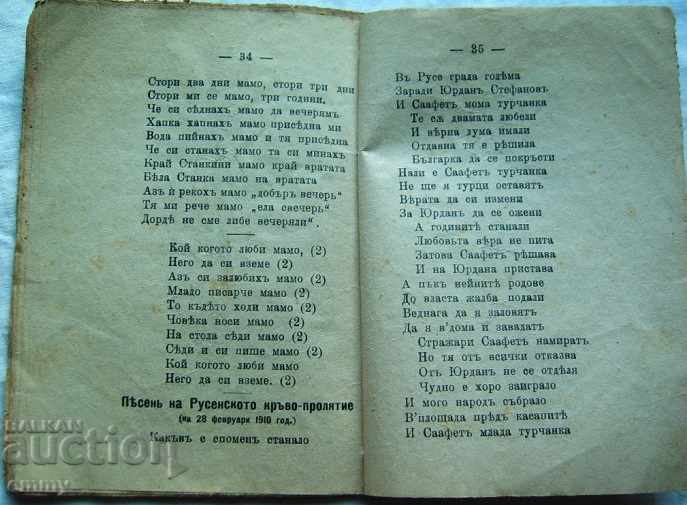 — 34 —
Стори два дни мамо, стори три дни
Стори ми се мамо, три години.
Че си сѣднахъ мамо да вечерямъ
Хапка хапнахъ мамо присѣдна ми
Вода пийнахъ мамо и тя присѣдна
Че си станахъ мамо та си минахъ
Край Станкини мамо край вратата
Бѣла Станка мамо на вратата
Азъ ѝ рекохъ мамо „добъръ вечеръ“
Тя ми рече мамо „ела свечеръ“
Дордѣ не сме либе вечеряли“.
Кой когото люби мамо, (2)
Него да си вземе (2)
Азъ си залюбихъ мамо (2)
Младо писарче мамо (2)
То кѫдѣто ходи мамо (2)
Човѣка носи мамо (2)
На стола сѣди мамо (2)
Сѣди и си пише мамо (2)
Кой когото люби мамо
Него да си вземе. (2)
Пѣсень на Русенското кръво-пролятие
(на 28 февруари 1910 год.)
Какъвъ е споменъ станало
— 35 —
Въ Русе града голѣма
Заради Юрданъ Стефановъ
И Саафетъ мома турчанка
Те сѫ двамата любели
И вѣрна дума имали
Отдавна тя е рѣшила
Българка да се покръсти
Нали е Саафетъ турчанка
Не ще я турци оставятъ
Вѣрата да си измени
За Юрданъ да се ожени
А годинитѣ станали
Любовьта вѣра не пита
Затова Саафетъ рѣшава
И на Юрдана пристава
А пъкъ нейнитѣ родове
До власта жалба подали
Веднага да я заловятъ
Да я в'дома и завадатъ
Стражари Саафетъ намиратъ
Но тя отъ всички отказва
Отъ Юрданъ не се отдѣля
Чудно е хоро заиграло
И мого народъ събрало
В'площада прѣдъ касапитѣ
И Саафетъ млада турчанка
БАЛКАН
auction
emmy